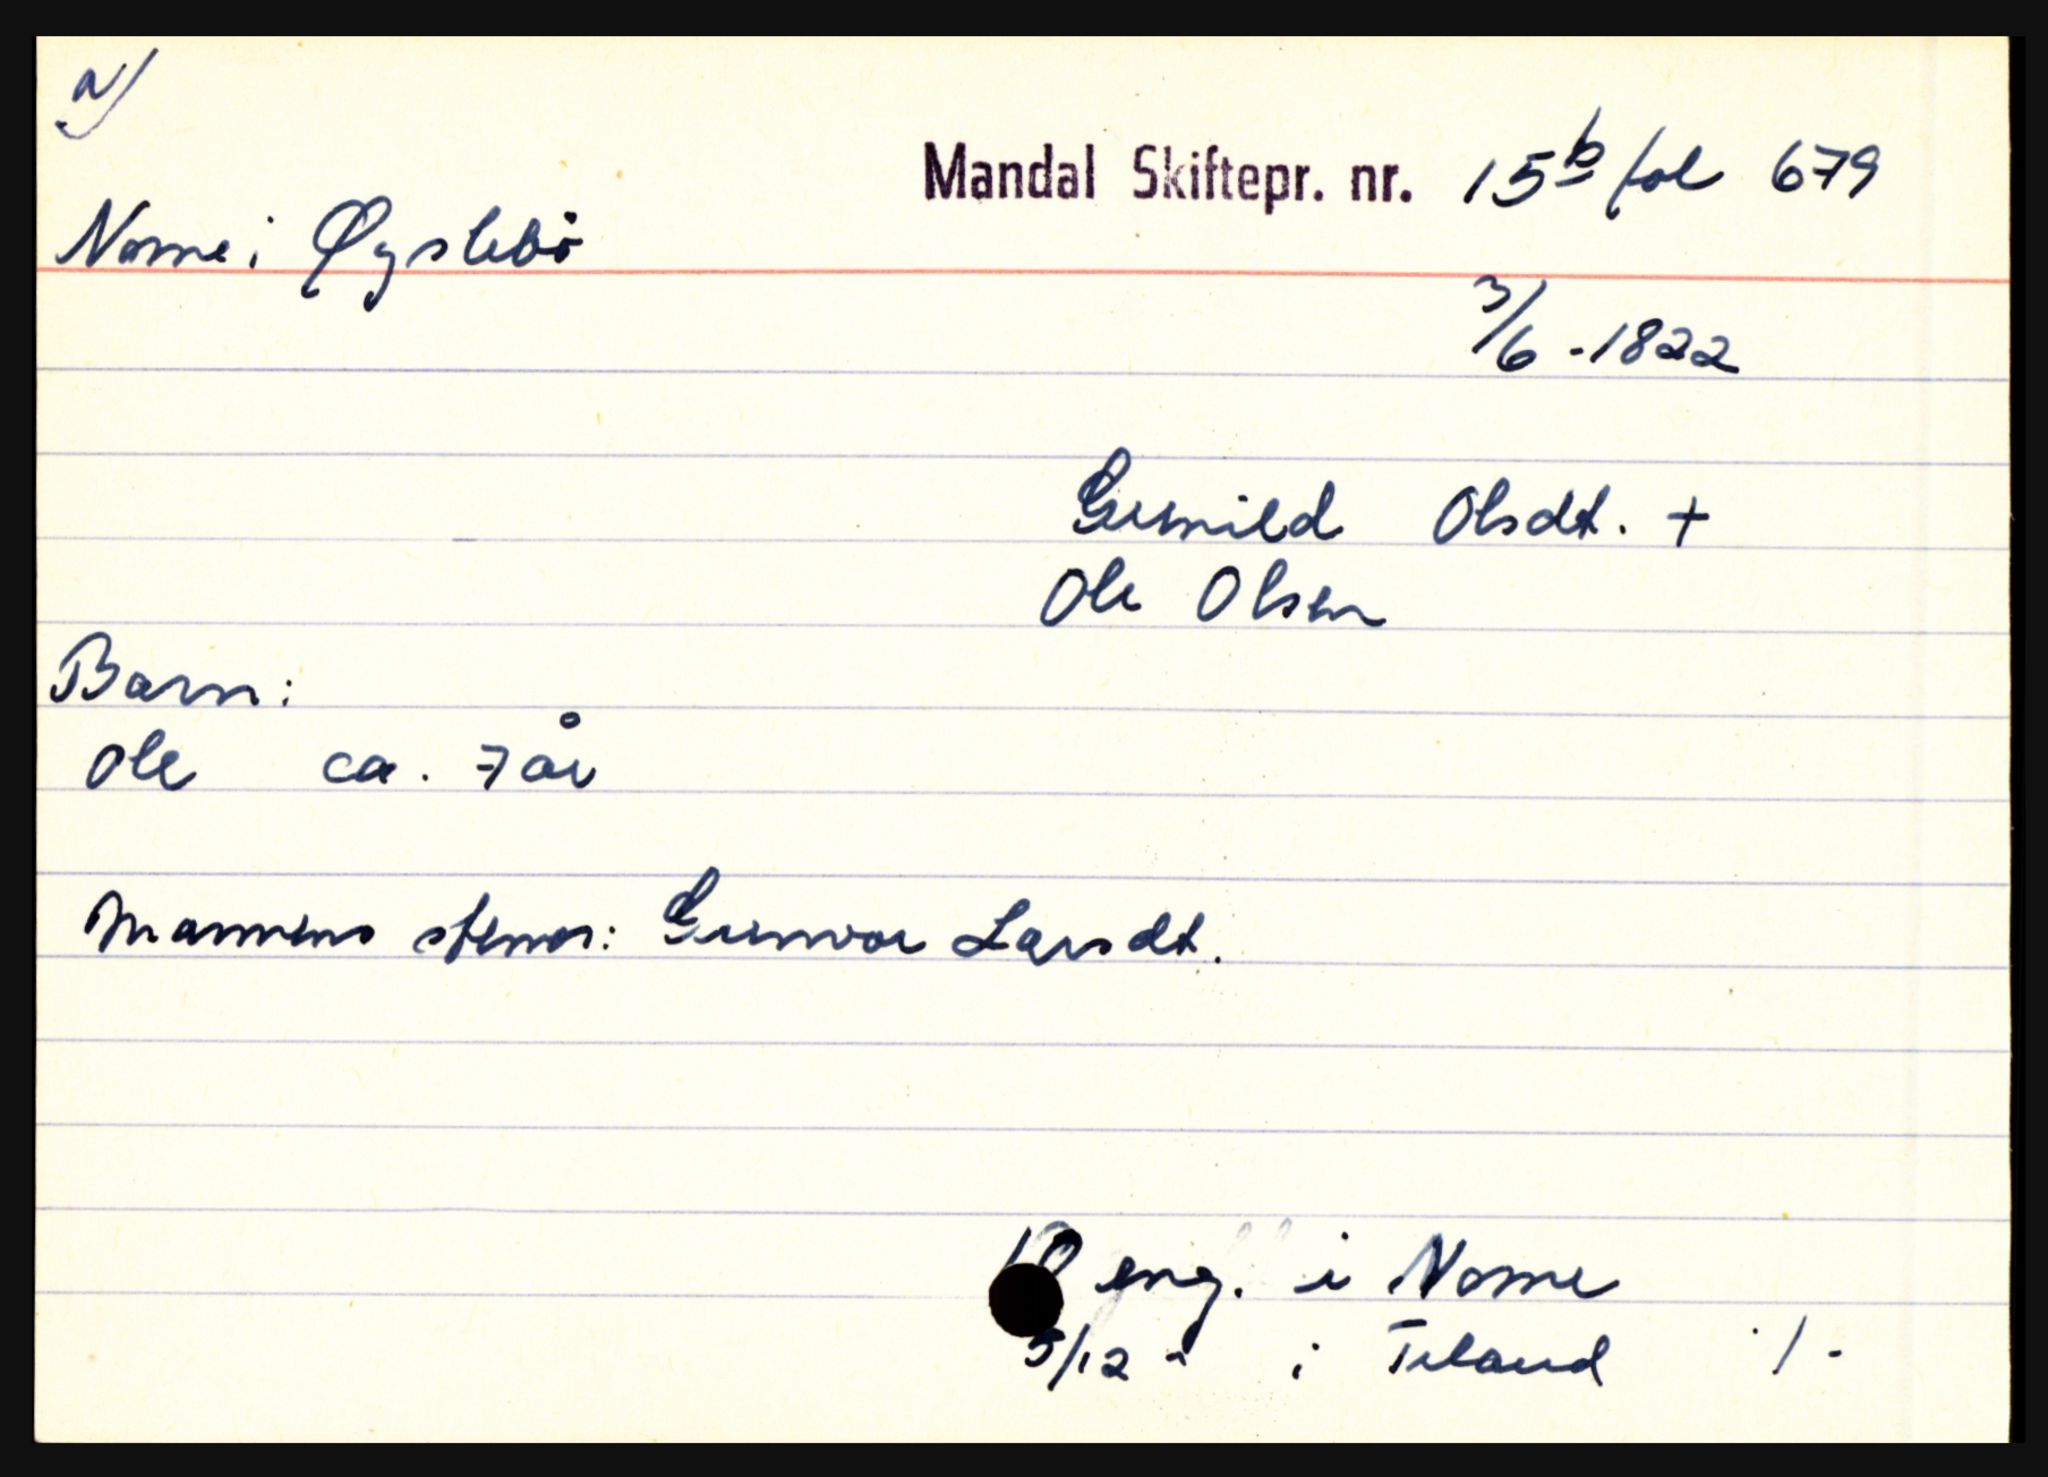 a/
Mandal Skiftepr. nr. 15b fol 679
Nome i Øyslebö
3/6 - 1822
Gunild Olsdt. +
Ole Olsen
Barn:
Ole ca. 7 år
Mannens stemor: Gunvor Larsdt.
eng. i Nome
5/12 " i Tveland /-